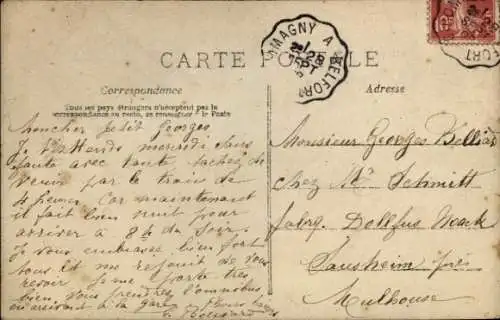 CARTE POSTALE
ROMAGNY A BELFORT
28
BELFORT
Correspondance
Tous les pays étrangers n'acceptent pas la
correspondance au recto, se renseigner à la Poste
Adresse
Mon cher petit Georges
Je t'attends mercredi sans
faute avec tante tachez de
venir par le train de
4 heures Car maintenant
il fait bien nuit pour
arriver a 8h du soir.
Je vous embrasse bien fort
tous et me rejouit de vous
revoir Je me porte tres
bien. Vous prendrez l'omnibus
en arrivant a la gare
Monsieur Georges
chez Mr Schmitt
fabrq. Dollfus Noack
Sausheim près
Mulhouse